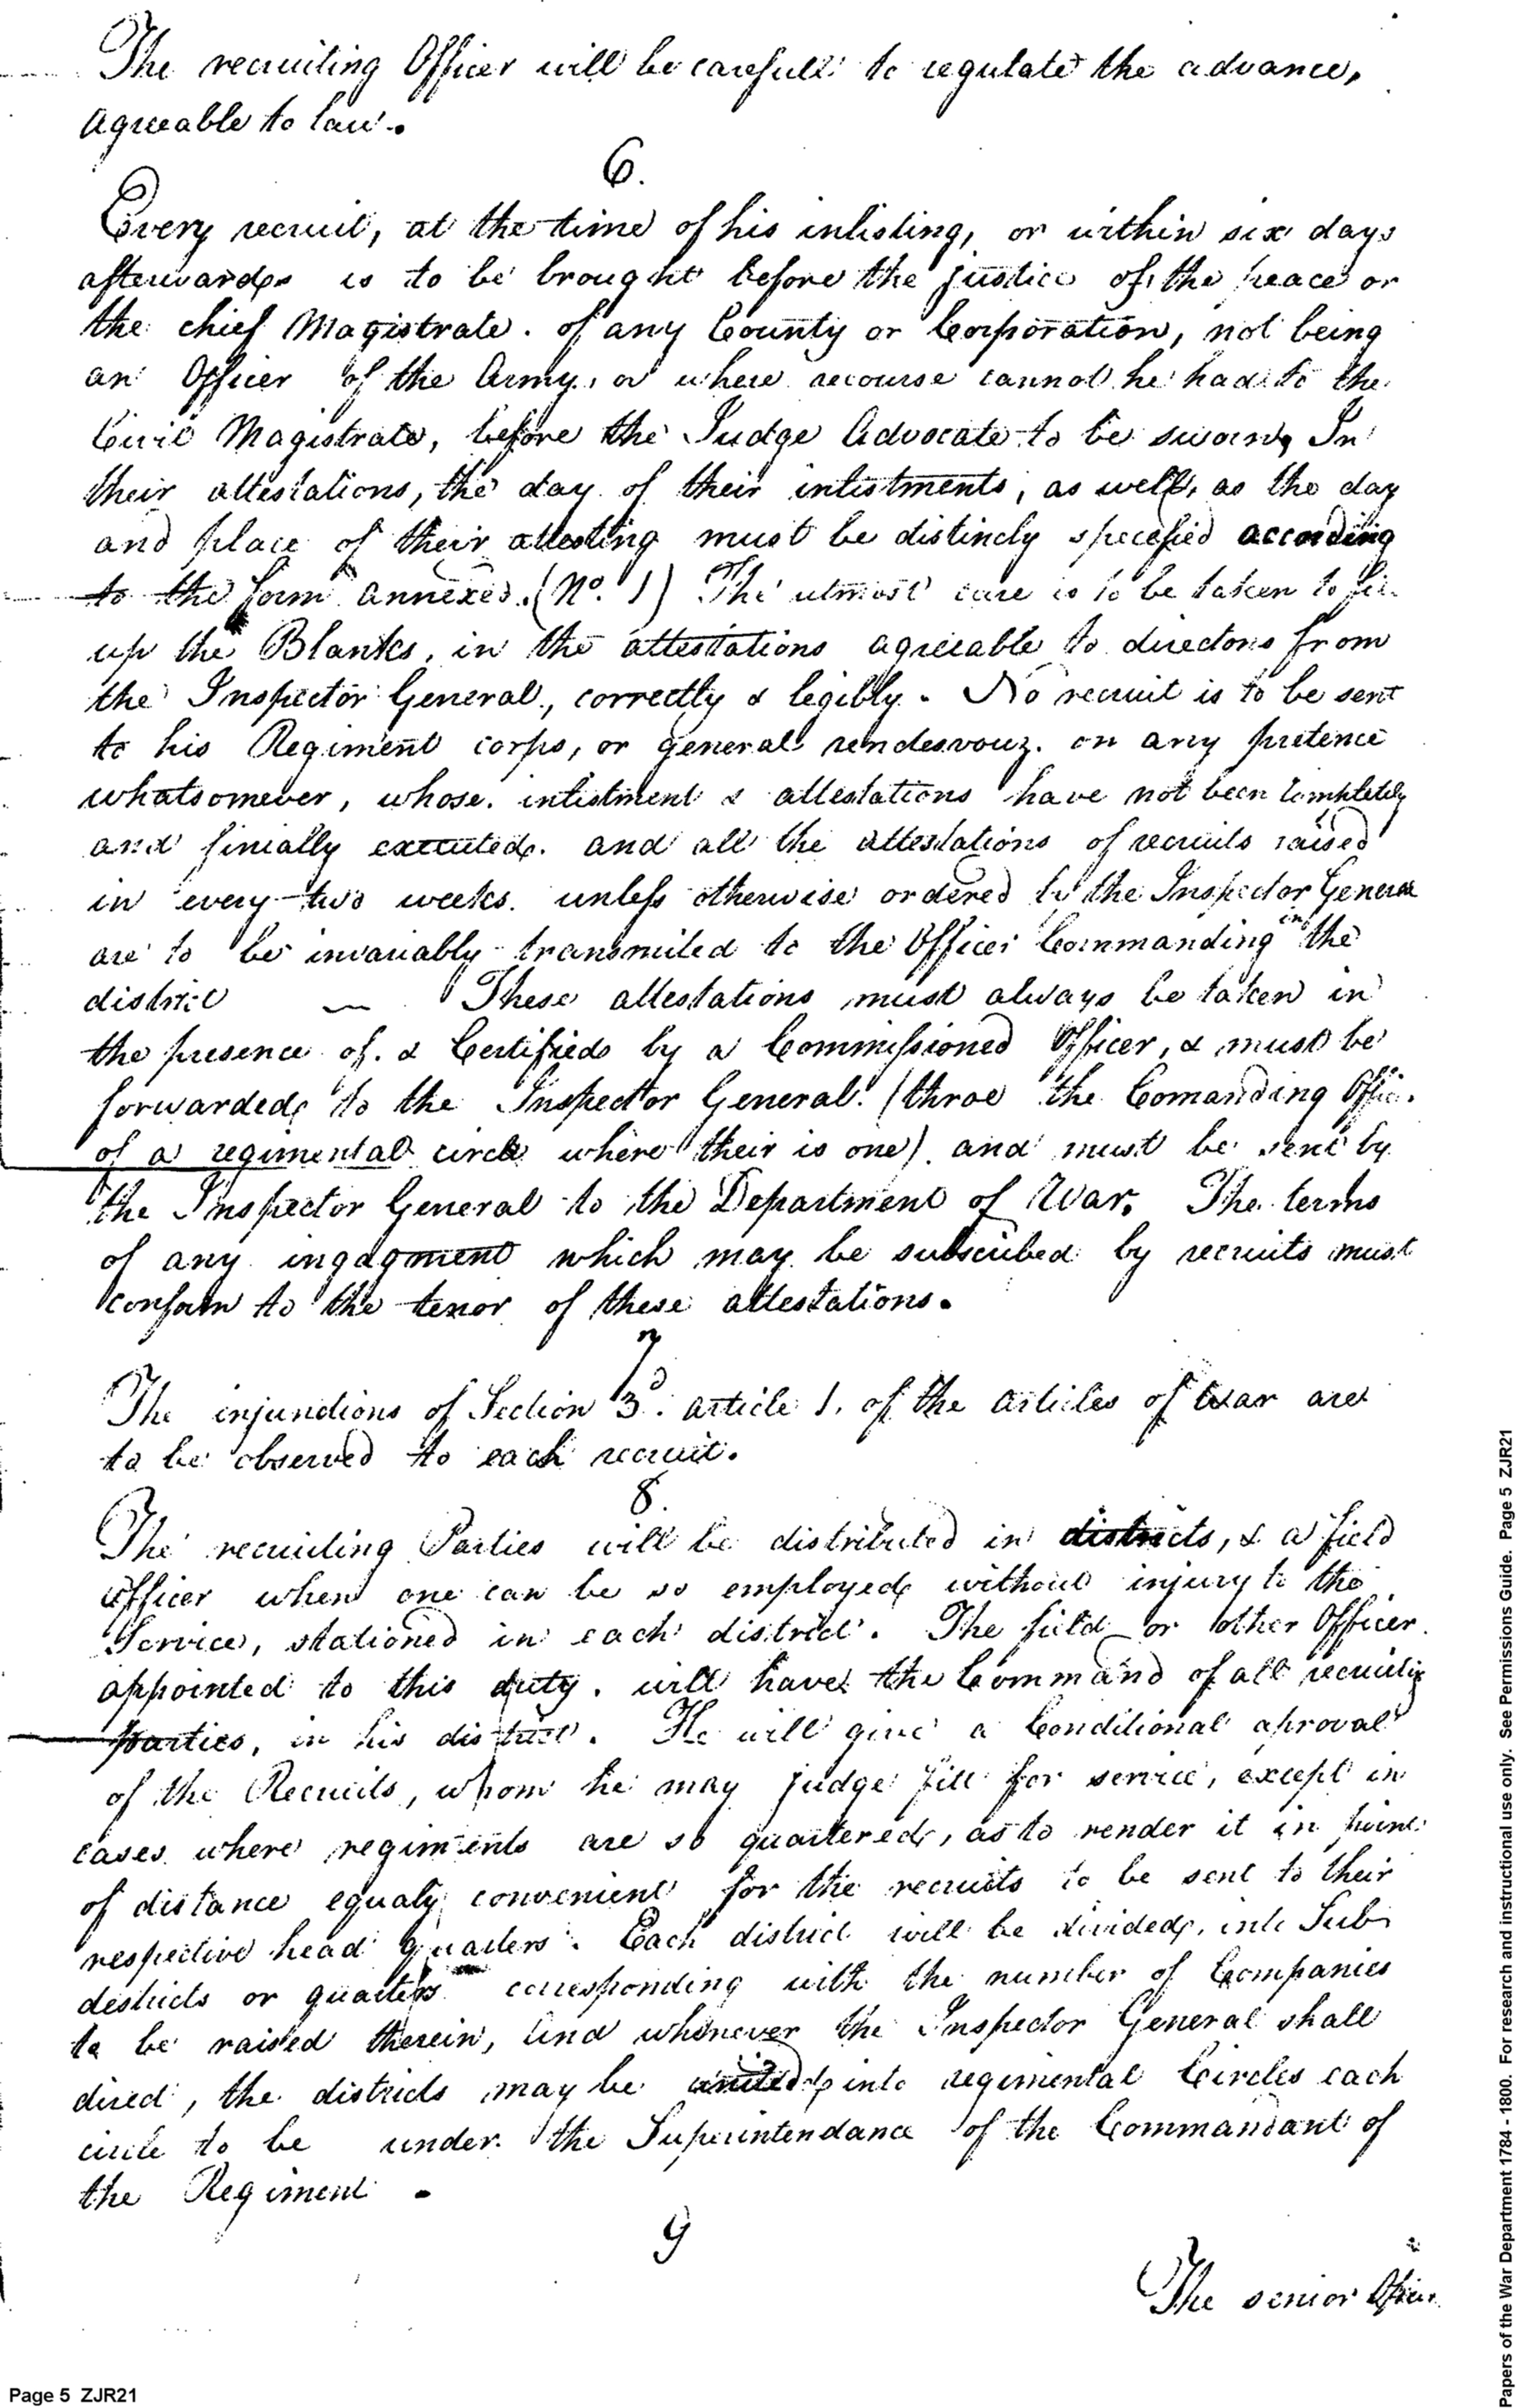 The recruiting Officer will be carefull to regulate the advance,
agreeable to law.
6.
Every recruit, at the time of his inlisting, or within six days
afterwards is to be brought before the justice of the peace or
the chief Magistrate. of any County or Corporation, not being
an Officer of the Army, or where recourse cannot be had to the
Civil Magistrate, before the Judge Advocate to be sworn, In
their attestations, the day of their inlistments, as well, as the day
and place of their attesting must be distincly specefied according
to the form annexed. (No. 1) The utmost care is to be taken to
up the Blanks, in the attestations agreeable to directons from
the Inspector General, correctly & legibly. No recruit is to be sent
to his Regiment corps, or general rendesvouz. on any pretence
whatsomever, whose. inlistment & attestations have not been completely
and finially executed. and all the attestations of recruits raised
in every two weeks. unless otherwise ordered by the Inspector General
are to be invariably transmited to the Officer Commanding in the
district ~ These attestations must always be taken in
the presence of. & Certified by a Commissioned Officer, & must be
forwarded to the Inspector General. (throe the Comanding Offic.
of a regimental circle where their is one). and must be sent by
the Inspector General to the Department of War. The terms
of any ingagment which may be subscribed by recruits must
conform to the tenor of these attestations.
7
The injunctions of Section 3d. article 1. of the articles of War are
to be observed to each recruit.
8.
The recruiting Parties will be distributed in districts, & a field
officer when one can be so employed without injury to the
Service, stationed in each district. The field or other Officer
appointed to this duty. will have the Command of all recruitig
parties, in his district. He will give a Conditional aproval
of the Recruits, whom he may judge fitt for service, except in
cases where regiments are so quartered, as to render it in point
of distance equaly convenient for the recruits to be sent to their
respective head quarters. Each district will be divided, into Sub
destricts or quarters corresponding with the number of Companies
to be raised therein, and whenever the Inspector General shall
direct, the districts may be united into regimental Circles each
circle to be under the Superintendance of the Commandant of
the Regiment -
9
The senior Officer
Page 5 ZJR21
Papers of the War Department 1784 - 1800. For research and instructional use only. See Permissions Guide. Page 5 ZJR21